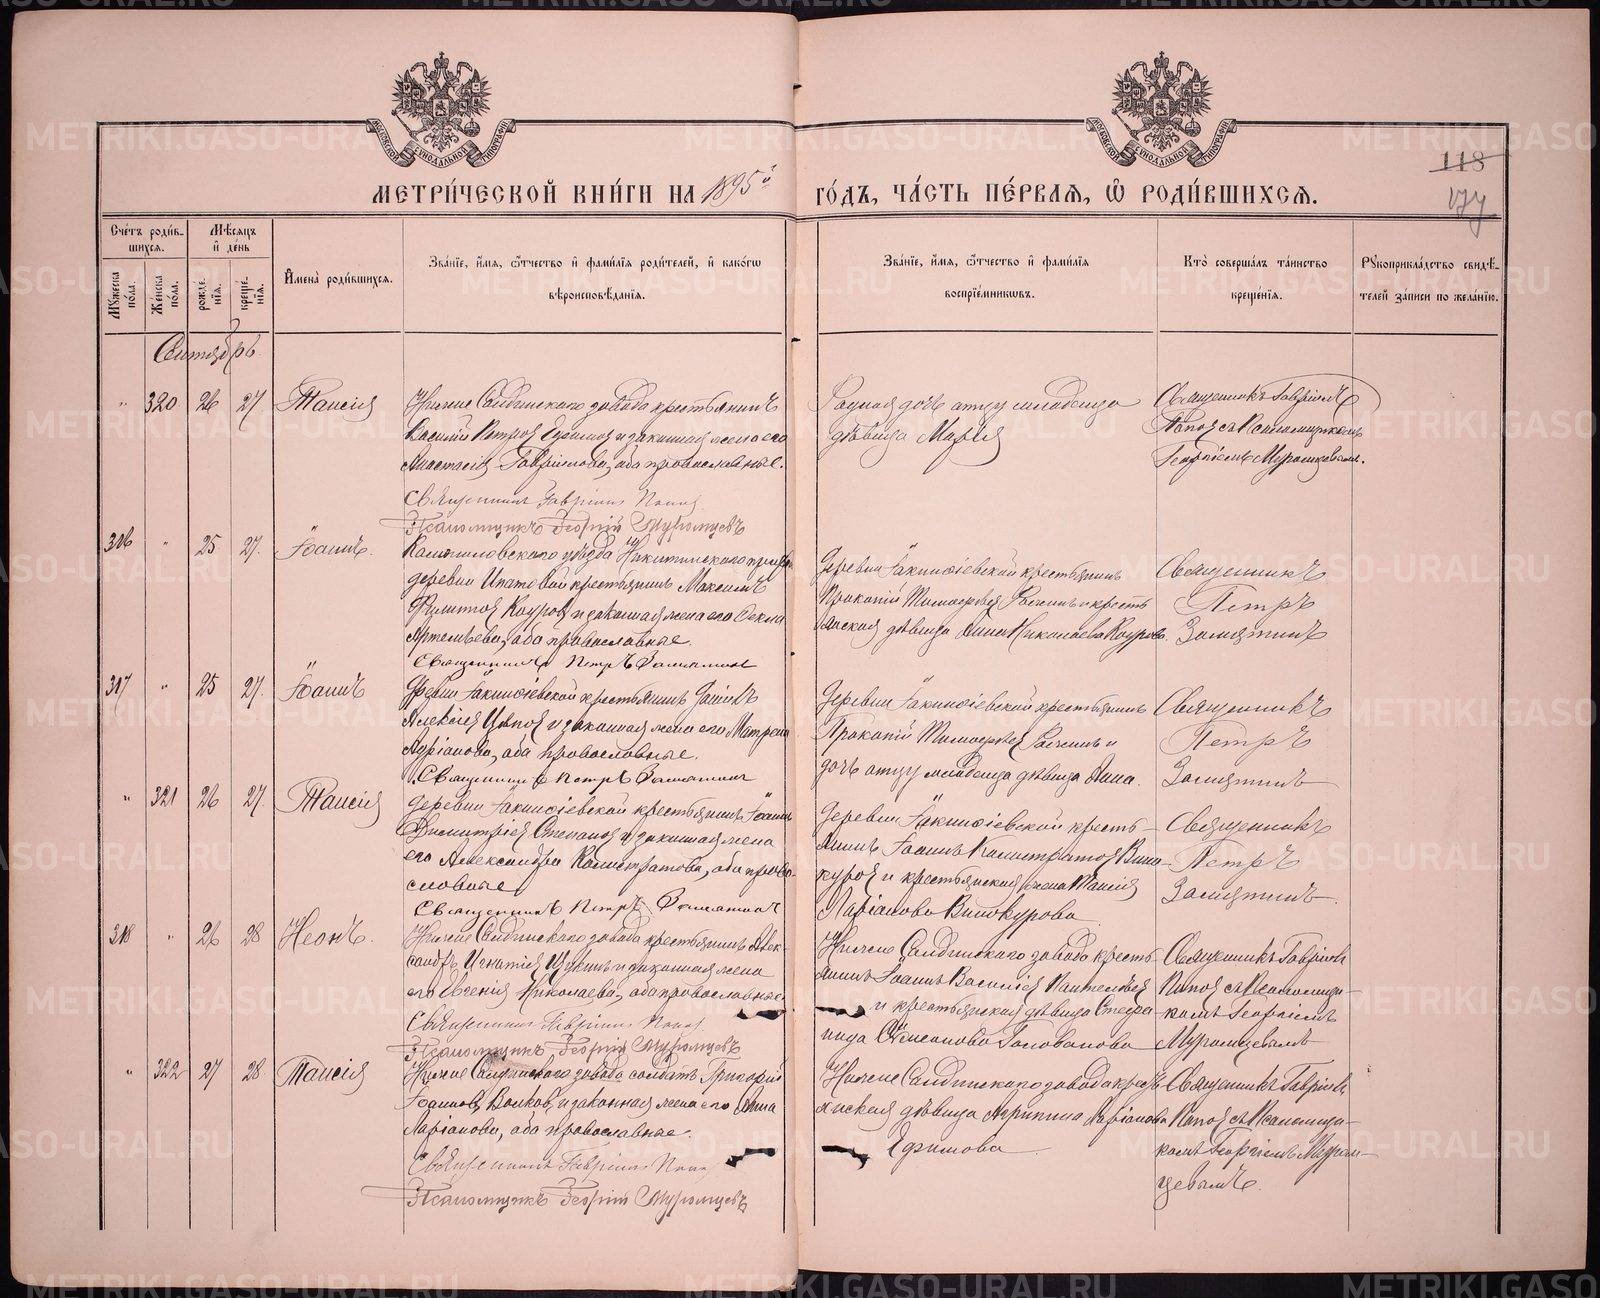 МЕТРИ́ЧЕСКОЙ КНИ́ГИ НА 1895й ГО́ДЪ, ЧА́СТЬ ПЕ́РВАЯ, Ѽ РОДИ́ВШИХСЯ.
118
177
Сче́тъ роди́в-
шихся.
Мꙋ́жеска по́ла.
Же́нска по́ла.
Мѣ́сяцъ и де́нь
рожде́-нїя.
креще́-нїя.
И҆мена̀ роди́вшихся.
Зва́нїе, и҆́мя, ѻ҆́тчество и҆ фами́лїя роди́телей, и҆ како́гѡ
вѣроисповѣ́данїя.
Зва́нїе, и҆́мя, ѻ҆́тчество и҆ фами́лїя
воспрїе́мникѡвъ.
Кто̀ соверша́лъ та́инство
креще́нїя.
Рꙋкоприкла́дство свидѣ́-
телей за́писи по жела́нїю.
Сентябрь.
" 320 26 27 Таисія
Нижне Салдинскаго завода крестьянинъ
Василій Петровъ и законная жена его
Анастасія Гавріилова, оба православные.
Священникъ Гавріилъ Поповъ
Псаломщикъ Георгій Муромцевъ
Родная дочь отцу младенца
дѣвица Марія
Священникъ Гавріилъ
Поповъ съ Псаломщикомъ
Георгіемъ
316 " 25 27. Іоаннъ.
Камышловскаго уѣзда Никитинскаго
деревни Ипатовой крестьянинъ Максимъ
и законная жена его Ѳекла
Артемьева, оба православные.
Священникъ Петръ Замятинъ
Деревни Іакинѳіевской крестьянинъ
Прокопій Тимоѳеевъ и кресть
янская дѣвица Анна Николаева
Священникъ
Петръ
Замятинъ
317 " 25 27. Іоаннъ
Деревни Іакинѳіевской крестьянинъ
Алексіевъ и законная жена его Матрена
Адріанова, оба православные.
Священникъ Петръ Замятинъ
Деревни Іакинѳіевской крестьянинъ
Прокопій Тимоѳеевъ и
дочь отцу младенца дѣвица Анна.
Священникъ
Петръ
Замятинъ
" 321 26 27. Таисія
Деревни Іакинѳіевской крестьянинъ Іоаннъ
Димитріевъ Степановъ и законная жена
его Александра Калистратова, оба право-
славные
Священникъ Петръ Замятинъ
Деревни Іакинѳіевской кресть-
янинъ Іоаннъ Калистратовъ Вино-
куровъ и крестьянская жена Таисія
Ларіонова Винокурова
Священникъ
Петръ
Замятинъ.
318 " 26 28 Неонъ.
Нижне Салдинскаго завода крестьянинъ Алек-
сандръ Игнатіевъ и законная жена
его Евгенія Николаева, оба православные
Священникъ Гавріилъ Поповъ
Псаломщикъ Георгій Муромцевъ
Нижне Салдинскаго завода кресть-
янинъ Іоаннъ Василіевъ Пантелеевъ
и крестьянская дѣвица Стефа
нида Голованова
Священникъ Гавріилъ
Поповъ съ Псаломщи-
комъ Георгіемъ
Муромцевымъ
" 322 27 28 Таисія
Нижне Салдинскаго завода солдатъ Григорій
Іоанновъ Волковъ, и законная жена его Анна
Ларіонова, оба православные.
Священникъ Гавріилъ Поповъ
Псаломщикъ Георгій Муромцевъ
Нижне Салдинскаго завода кресть
янская дѣвица Агрипина Ларіонова
Ефимова
Священникъ Гавріилъ
Поповъ съ Псаломщи-
комъ Георгіемъ Муром-
цевымъ.
METRIKI.GASO-URAL.RU